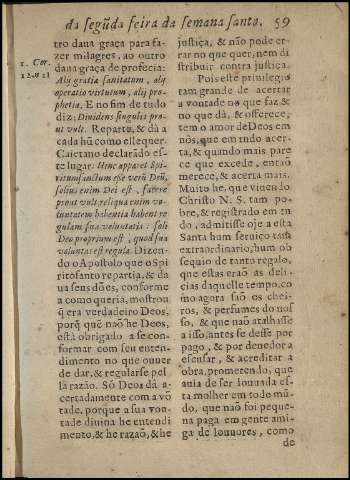 da segũda feira da semana santa. 59
tro daua graça para fa-
zer milagres, ao outro
daua graça de profecia:
1. Cor.
12. n. 21
Alij gratia sanitatum, alij
operatio virtutum, alij pro-
phetia. E no fim de tudo
diz; Diuidens singulis pro
ut vult. Reparte, & dà a
cada hũ como elle quer.
Caietano declarãdo es-
te lugar. Hinc apparet Spi-
ritum sanctum esse verũ Deũ,
solius enim Dei est, facere
prout vult: reliqua enim vo-
luntatem habentia habent re
gulam sua voluntatis: soli
Deo proprium est, quod sua
voluntas est regula. Dizen-
do o Apostolo que o Spi
rito santo repartia, & da
ua seus dões, conforme
a como queria, mostrou
q̃ era verdadeiro Deos,
porq̃ quẽ naõ he Deos,
està obrigado a se con-
formar com seu enten-
dimento no que ouuer
de dar, & regularse pel
la razão. Sò Deos dà a-
certadamente com a võ
tade, porque a sua von-
tade diuina he entendi
mento, & he razaõ, & he
justiça, & não pode er-
rar no que quer, nem di
stribuir contra justiça.
Pois este priuilegio
tam grande de acertar
a vontade no que faz &
no que dà, & offerece,
tem o amor de Deos em
nòs, que em tudo acer-
ta, & quando mais pare
ce que excede, entaõ
merece, & acerta mais.
Muito he, que viuendo
Christo N. S. tam po-
bre, & registrado em tu
do, admitisse oje a esta
Santa hum seruiço tam
extraordinario, hum ob
sequio de tanto regalo,
que estas eraõ as deli-
cias daquelle tempo, co
mo agora saõ os chei-
ros, & perfumes do nos-
so, & que não atalhasse
a isso, antes se desse por
pago, & por deuedor a
escusar, & acreditar a
obra, prometendo, que
auia de ser louuada es-
ta molher em todo mũ-
do, que não foi peque-
na paga em gente ami-
ga de louuores, como
de